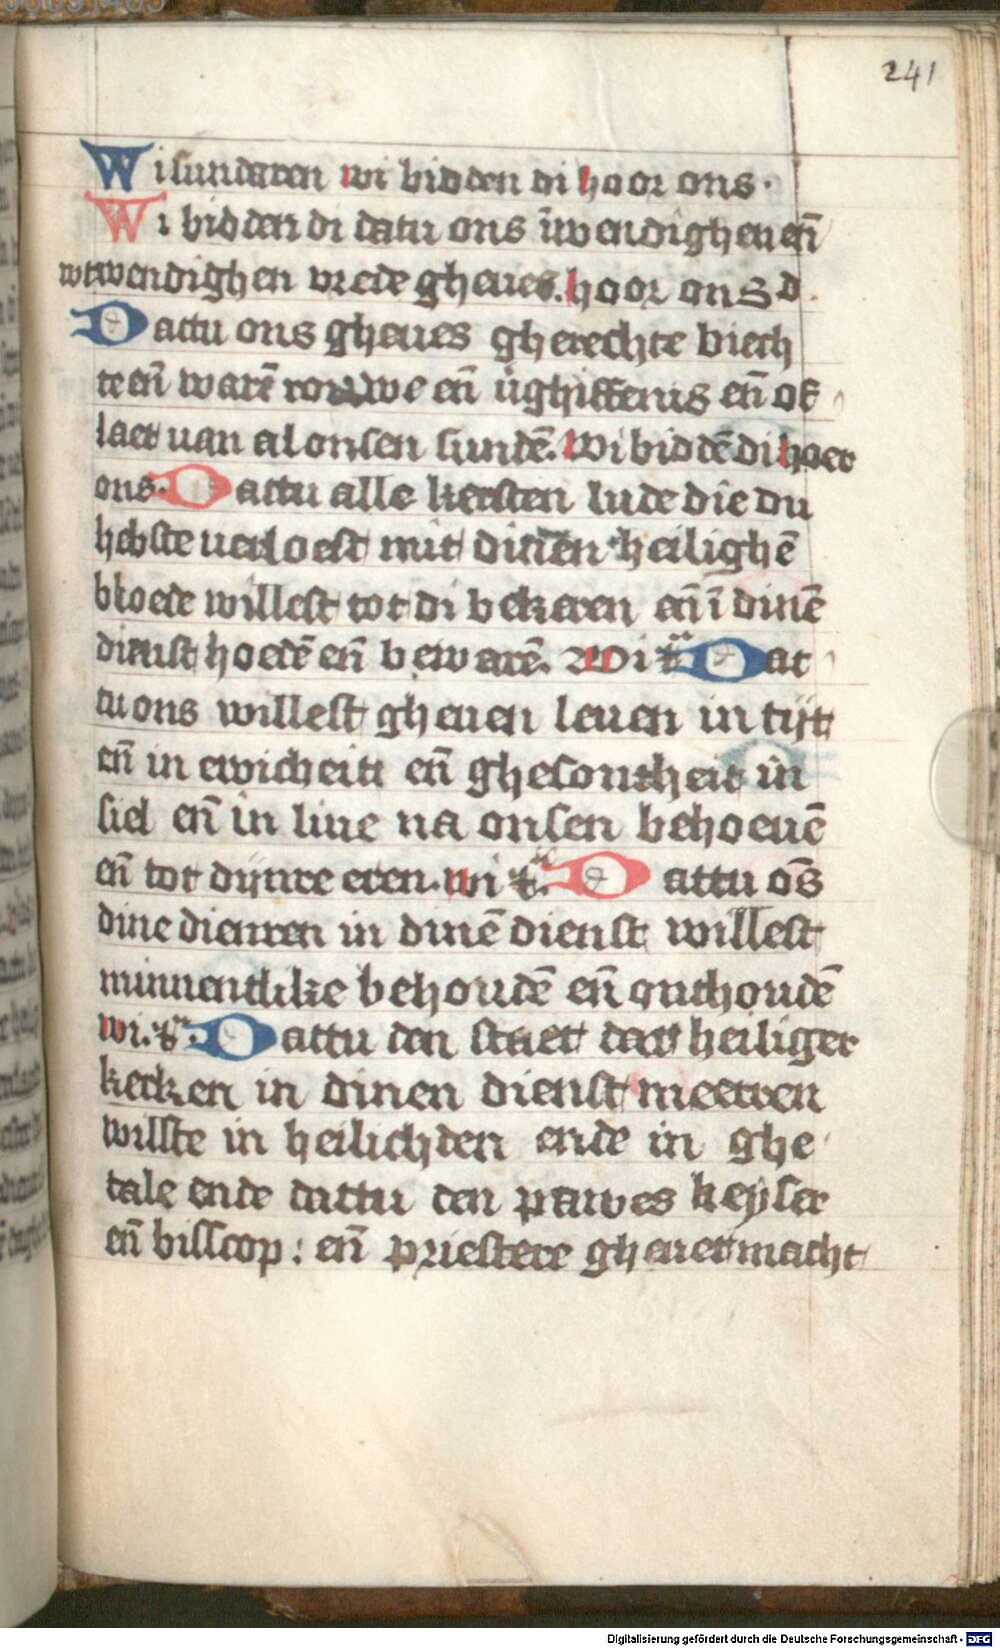 241
Wi sundaren wi bidden di hoor ons.
Wi bidden di datu ons ī̄wendighen eñ
wtwendighen vrede gheues. hoor ons d.
Dattu ons gheues gherechte biech
te eñ warē rouwe eñ ūghiffenis eñ of
laet uan al onsen sundē. Wi biddē di hoer
ons. Dattu alle kersten lude die du
hebste uerloest mit dinen heilighē
bloede willest tot di bekeren eñ ī dinē
dienst hoedē eñ bewarē. Wi t Dat
tu ons willest gheuen leuen in tijt
eñ in ewicheit eñ ghesontheit in
siel eñ in liue na onsen behoeuē
eñ tot dijnre eren. wi t. Dattu ōs
dine dienren in dinē dienst willest
minnentlike behoudē eñ onthoudē
wi. t. Dattu den staet der heiliger
kerken in dinen dienst meerren
willste in heilichden ende in ghe
tale ende dattu den pauwes keyser
eñ bisscop: eñ priestere gheuet macht
Digitalisierung gefördert durch die Deutsche Forschungsgemeinschaft - DFG